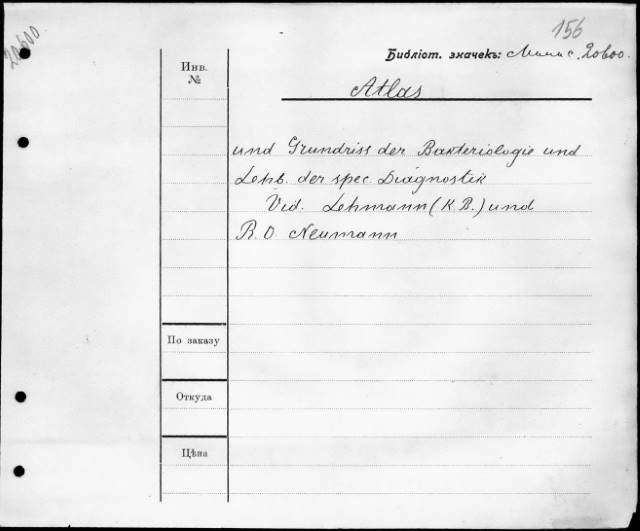 156
20600
Библіот. значекъ:
20600.
Инв.
№
Atlas
und Grundriss der Bakteriologie und
Lehb. der spec. Diagnostik
Vid. Lehmann (K.B.) und
R. O. Neumann
По заказу
Откуда
Цѣна